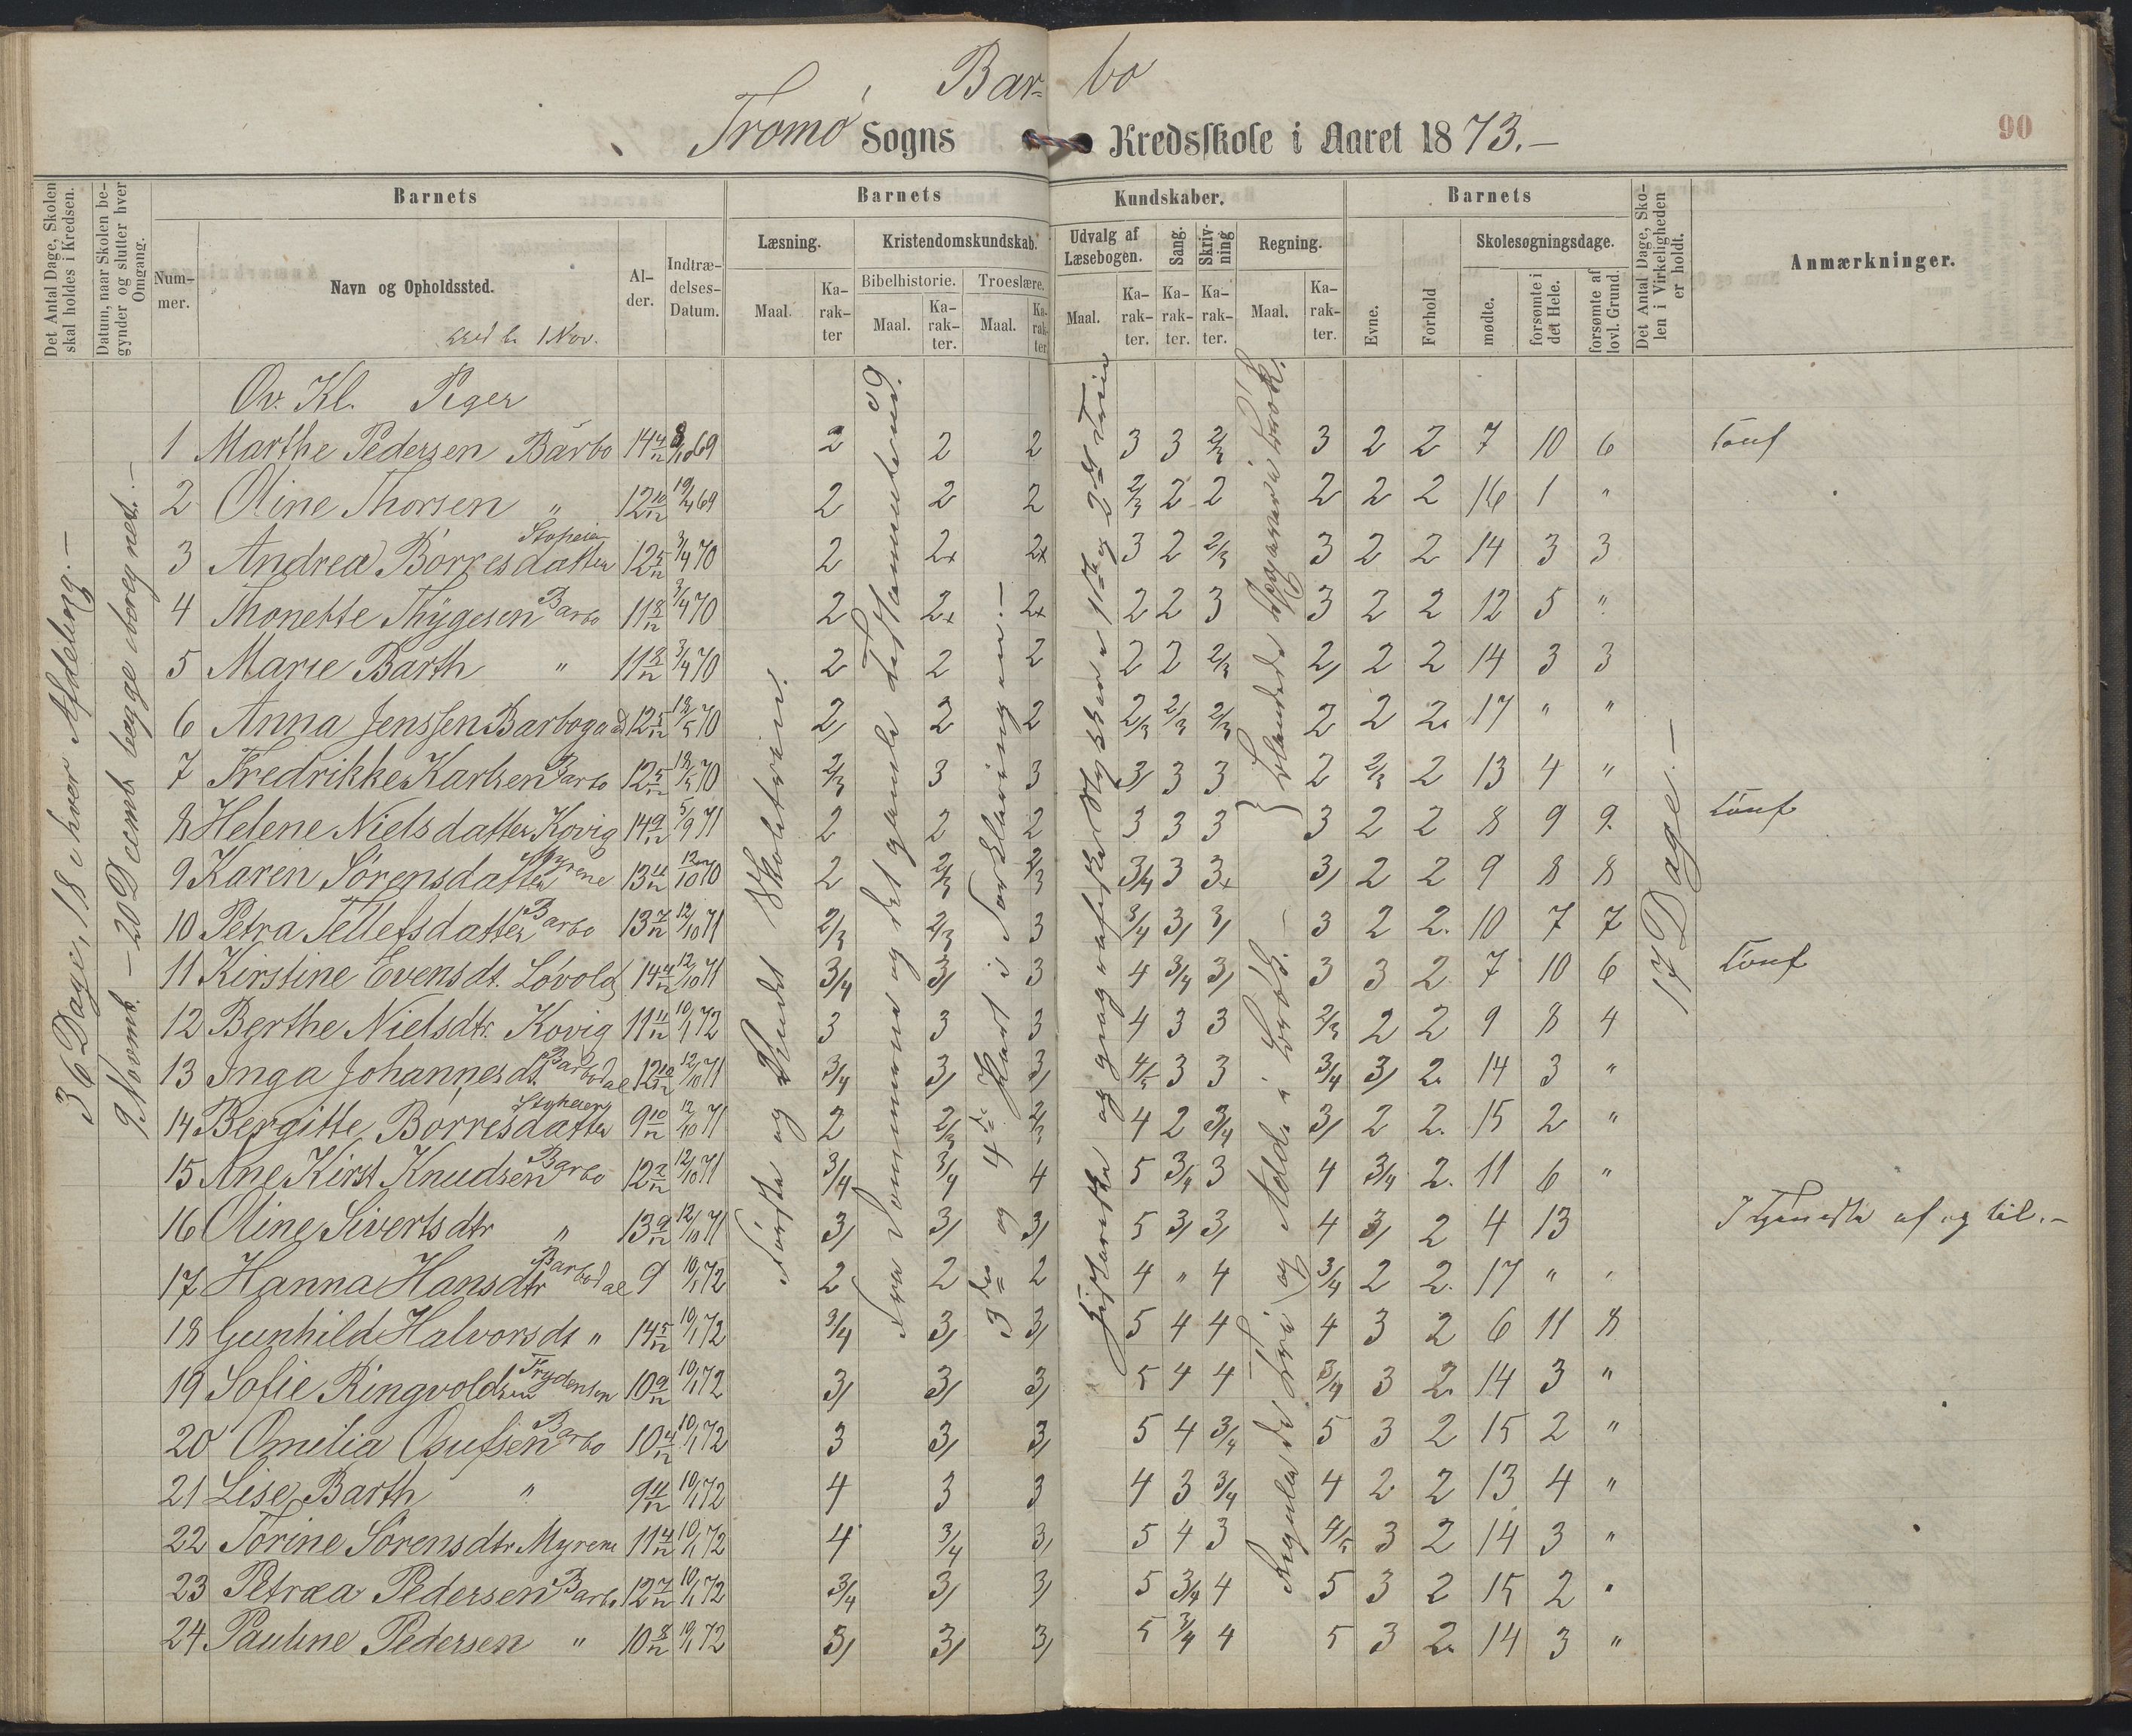 Bar- bo
Tromø Sogns Kredsskole i Aaret 1873.-
90
Det Antal Dage, Skolen skal holdes i Kredsen.
Datum, naar Skolen begynder og slutter hver Omgang.
Barnets
Nummer.
Navn og Opholdssted.
1 Nov.
Alder.
Indtrædelses-Datum.
Barnets Kundskaber.
Læsning.
Maal.
Karakter
Kristendomskundskab.
Bibelhistorie.
Maal.
Karakter.
Troeslære.
Maal.
Karakter
Udvalg af Læsebogen.
Maal.
Karakter.
Sang.
Karakter.
Skrivning
Karakter.
Regning.
Maal.
Karakter.
Barnets
Evne.
Forhold
Skolesøgningsdage.
mødte.
forsømte i det Hele.
forsømte af lovl. Grund.
Det Antal Dage, Skolen i Virkeligheden er holdt.
Anmærkninger.
36 Dage, 18 i hver Afdeling.-
9 Novemb. - 20 Decemb. begge iberegnet.-
Første og Andet Skoletrin.
3die og 4de Part i Forklaringen.-
17 Dage.-
Ov. Kl. Piger
1 Marthe Pedersen Barbo 14 4/12 69 2 2 2 3 3 2/3 3 2 2 7 10 6 Conf
2 Oline Thorsen " 12 10/12 19/4 69 2 2 2 2/3 2 2 2 2 2 16 1 "
3 Andrea Børresdatter 12 5/12 3/4 70 2 2+ 2+ 3 2 2/3 3 2 2 14 3 3
4 Thonette Thygesen Barbo 11 8/12 3/4 70 2 2+ 2+ 2 2 3 3 2 2 12 5 "
5 Marie Barth " 11 8/12 3/4 70 2 2 2 2 2 2/3 2/ 2 2 14 3 3
6 Anna Jenssen Barbogad 12 5/12 70 2/ 2 2 2/3 2/3 2/3 2 2 2. 17 " "
7 Fredrikke Karlsen Barbo 12 5/12 70 2/3 3 3 3/ 3 3 2 2/3 2 13 4 "
8 Helene Nielsdatter Kovig 14 9/12 5/9 71 2 2 2 3 3 3 3 2 2 8 9 9. Conf
9 Karen Sørensdatter Myrene 13 11/12 12/10 70 2 2/3 2/3 3/4 3 3+ 3/ 2 2 9 8 8
10 Petra Tellefsdatter Barbo 13 7/12 12/10 71 2/3 2/3 3 3/4 3/ 3/ 3 2 2. 10 7 7
11 Kirstine Evensdt. Løvold 14 4/12 12/10 71 3/4 3/ 3 4 3/4 3/ 3 3 2 7 10 6 Conf
12 Berthe Nielsdtr. Kovig 11 11/12 10/1 72 3 3 3 4 3 3 2/3 2 2 9 8 4
13 Inga Johannesdt. Barbodal 12 10/12 12/10 71 3/4 3/ 3/ 4/5 3 3 3/4 3/ 2. 14 3 "
14 Bergitte Børresdatter 9 10/12 12/10 71 2 2/3 2/3 4 2 3/4 3/ 2 2. 15 2 "
15 Ane Kirst Knudsen Barbo 12 2/12 12/10 71 3/4 3/4 4 5 3/4 3 4 3/4 2. 11 6 "
16 Oline Sivertsdtr " 13 9/12 12/10 71 3/ 3/ 3/ 5 3/ 3/ 4 3/ 2 4 13 I Tjeneste af og til.-
17 Hanna Hansdtr Barbodal 9 10/1 72 2 2 2 4 " 4 3/4 2 2. 17 " "
18 Gunhild Halvorsdt " 14 5/12 10/1 72 3/4 3/ 3/ 5 4 4 4 3 2 6 11 8
19 Sofie Ringvoldsen 10 9/12 10/1 72 3/ 3/ 3/ 5 4 4 3/4 3 2. 14 3 "
20 Omilia Osufsen Barbo 10 4/12 10/1 72 3 3/ 3/ 5 4 3/4 5 3 2 15 2 "
21 Lise Barth " 9 11/12 10/1 72 4 3 3 4 3 3/4 4 2 2 13 4 "
22 Torine Sørensdtr Myrene 11 4/12 10/1 72 4 3/4 3/ 5 4 3 4/5 3 2 14 3 "
23 Petræa Pedersen Barbo 12 7/12 10/1 72 3/4 3/ 3/ 5 3/4 4 5 3 2 15 2 "
24 Pauline Pedersen " 10 8/12 10/1 72 3/ 3/ 3/ 5 3/4 4 5 3 2. 14 3 "